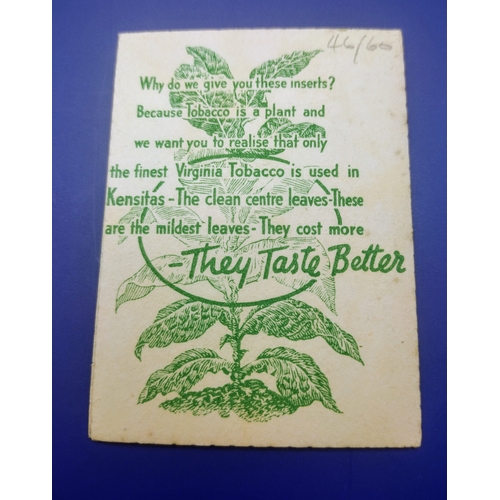 46/60
Why do we give you these inserts?
Because Tobacco is a plant and
we want you to realise that only
the finest Virginia Tobacco is used in
Kensitas - The clean centre leaves - These
are the mildest leaves - They cost more
- They Taste Better